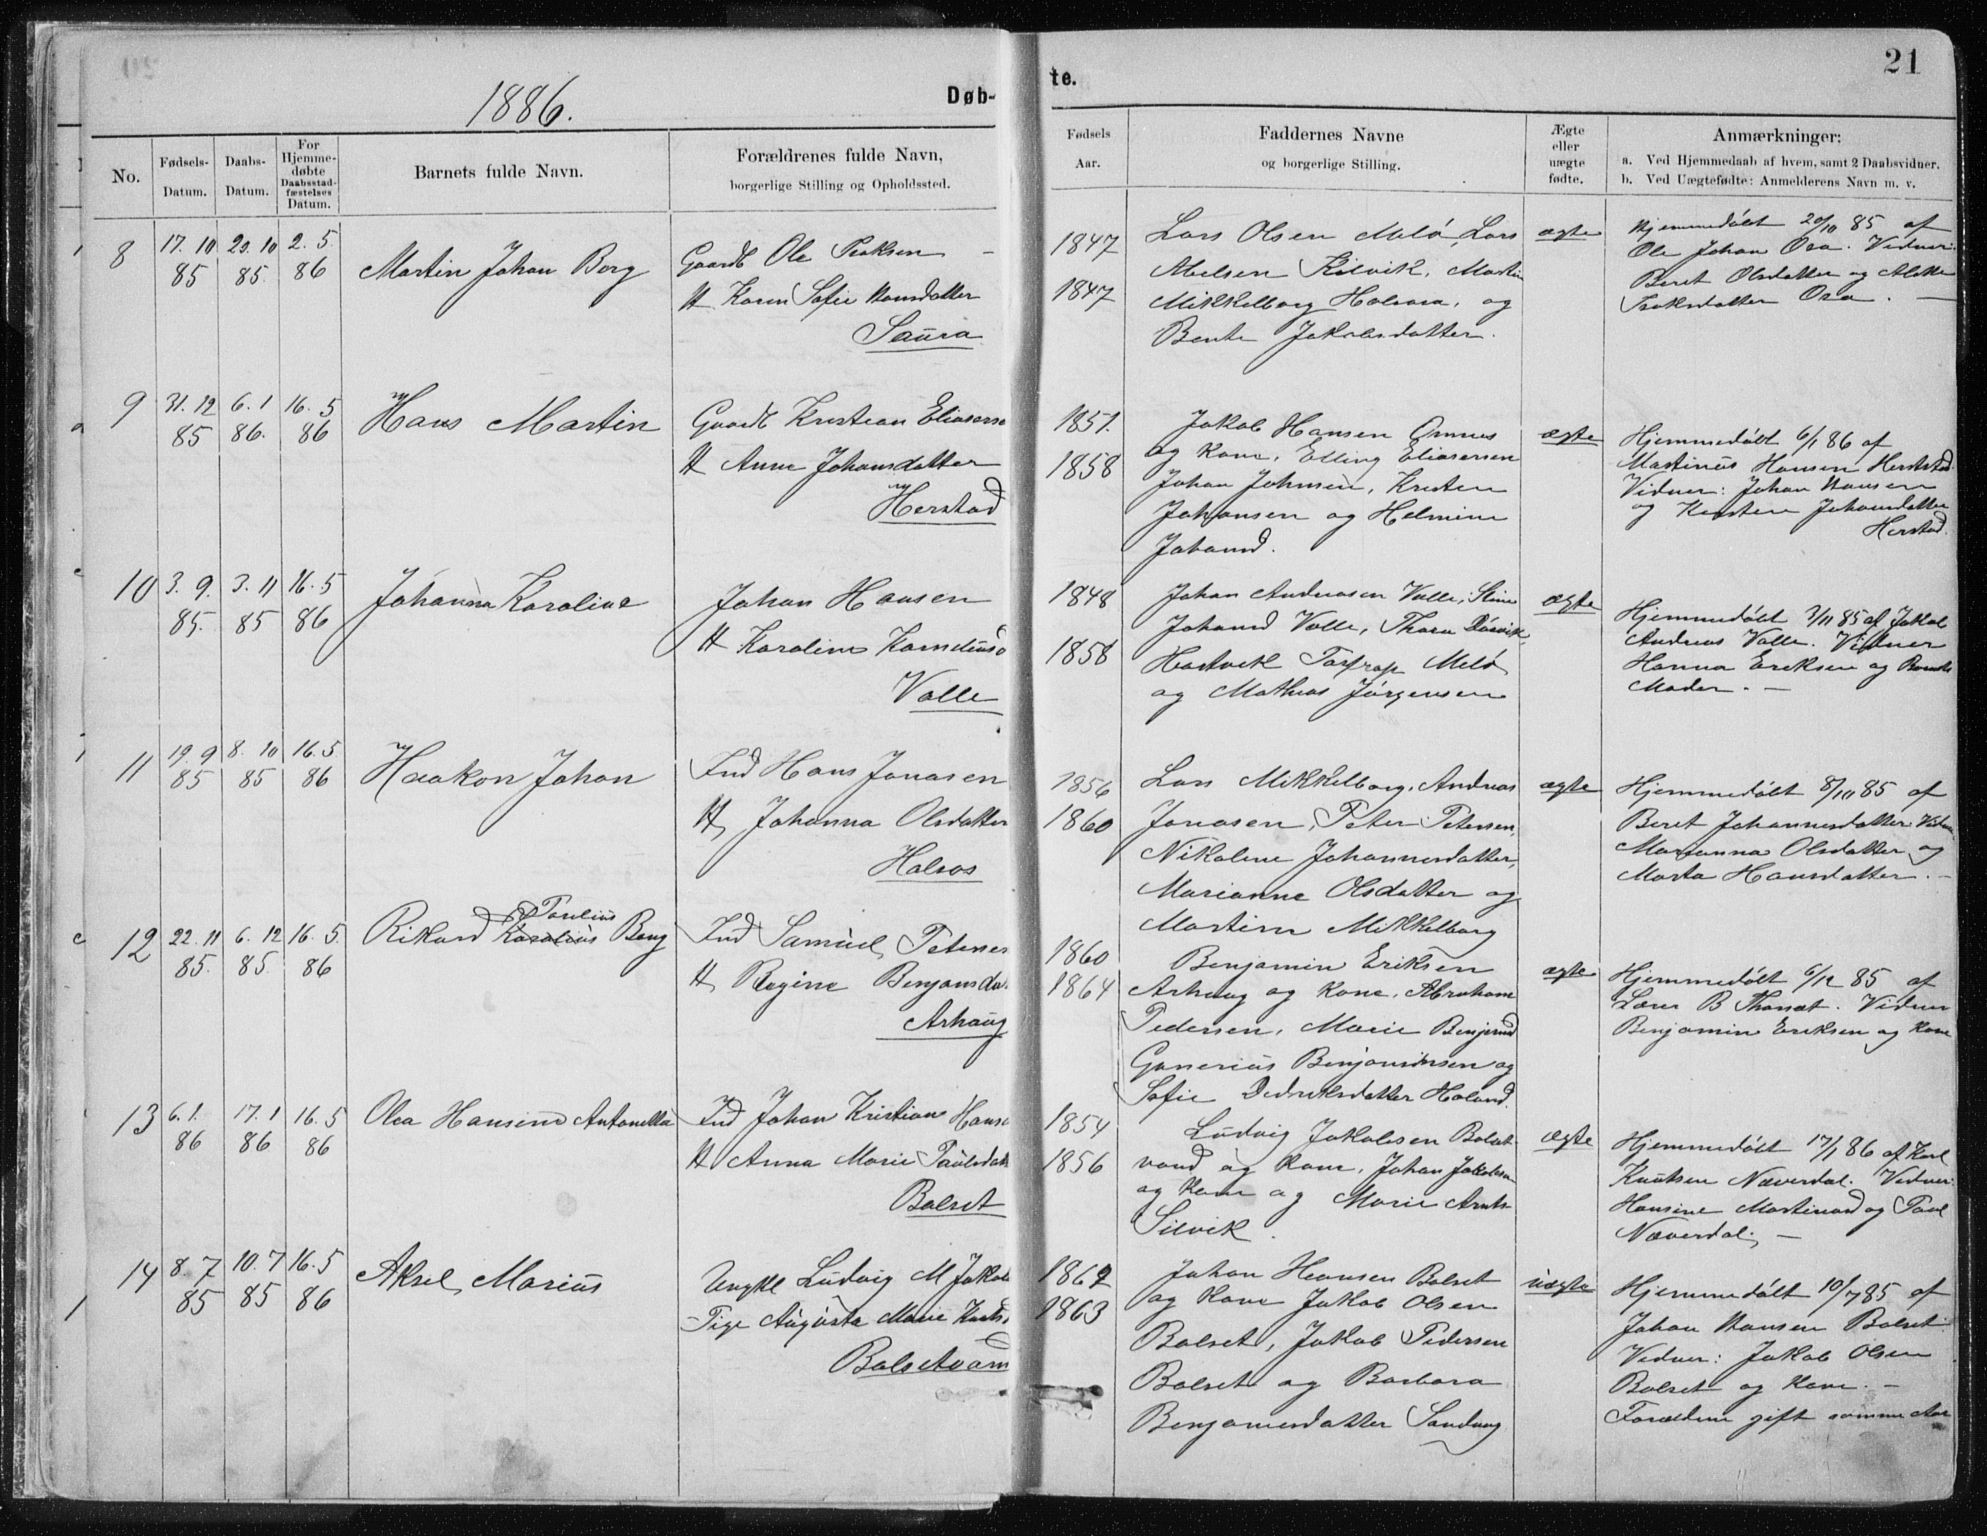 21
1886.
Døb-
te.
No.
Fødsels-
Datum.
Daabs-
Datum.
For
Hjemme-
døbte
Daabsstad-
fæstelses
Datum.
Barnets fulde Navn.
Forældrenes fulde Navn,
borgerlige Stilling og Opholdssted.
Fødsels
Aar.
Faddernes Navne
og borgerlige Stilling.
Ægte
eller
uægte
fødte.
Anmærkninger:
a. Ved Hjemmedaab af hvem, samt 2 Daabsvidner.
b. Ved Uægtefødte: Anmelderens Navn m. v.
8
17. 10
85
20. 10
85.
2. 5
86
Martin Johan Borg
Gaardb Ole Isaksen
H Karen Sofie Hansdatter
Saura
1847
1847
Lars Olsen Melø, Lars
Abelsen Kilvik, Martin
Mikkelborg Halsaa, og
Bente Jakobsdatter.
ægte
Hjemmedøbt 20/10 85 af
Ole Johan Osa. Vidner:
Beret Olsdatter og
Isaksdatter Osa.
9
31. 12
85
6. 1
86.
16. 5
86
Hans Martin
Gaardb Kristian Eliasse
H Anne Johansdatter
Herstad
1851.
1858
Jakob Hansen Omnes
og Kone, Elling Eliassen
Johan Johnsen, Kristen
Johansen og Helmine
Johansd.
ægte
Hjemmedøbt 6/1 86 af
Martinus Hansen Herstad.
Vidner: Johan Hansen
og Kirsten Johansdatter
Herstad.
10
3. 9.
85.
3. 11
85
16. 5
86
Johanna Karoline
Johan Hansen
H Karoline Kornelius
Valle
1848
1858
Johan Andreasen Valle, Stine
Johansd Valle, Thora
Hartvik Torp Melø
og Mathias Jørgensen
ægte
Hjemmedøbt 3/11 85 af Jakob
Andreas Valle. Vidner
Hanna Eriksen og Barnets
Moder.
11
19. 9
85
8. 10
85
16. 5
86
Haakon Johan
Ind Hans Jonasen
H, Johanna Olsdatter
Halsos
1856
1860
Lars Mikkelborg, Andreas
Jonasen, Peter Petersen,
Nikoline Johannesdatter,
Marianne Olsdatter og
Martin Mikkelborg
ægte
Hjemmedøbt 8/10 85 af
Beret Johannesdatter. Vidner
Marianna Olsdatter og
Marta Hansdatter.
12
22. 11
85.
6. 12
85.
16. 5.
86
Paulius
Rikard Karolius Beng
Ind Samuel Peterse
H, Regine Benjamsda
Arhaug
1860
1864
Benjamin Eriksen
Arhaug og Kone, Abraham
Pedersen, Marie Benjamd
Gunerius Benjaminsen og
Sofie Dedriksdatter Haland.
ægte
Hjemmedøbt 6/12 85 af
Lærer B Thoresat. Vidner
Benjamin Eriksen og Kone
13
6. 1.
86
17. 1
86
16. 5
86
Olea Hansine Antonetta
Ind Johan Kristian Hans
H Anna Marie Paulsdat
Bolset
1854
1856
Ludvig Jakobsen Bolset-
vand og Kone, Johan Jakobsen
og Kone og Marie Arnts-
Silvik.
ægte
Hjemmedøbt 17/1 86 af Karl
Knutsen Næverdal. Vidner:
Hansine Martinusd og Paul
Næverdal.
14
8. 7
85
10. 7
85
16. 5
86
Aksel Marius
Ungkl Ludvig M Jakob
Pige Augusta Marie
Bolsetvam
1862
1863
Johan Hansen Bolset
og Kone Jakob Olsen
Bolset, Jakob Pedersen
Bolset og Barbara
Benjaminsdatter Sandvaag
uægte
Hjemmedøbt 10/7 85 af
Johan Hansen Bolset
Vidner: Jakob Olsen
Bolset og Kone.
Forældrene gift samme Aar